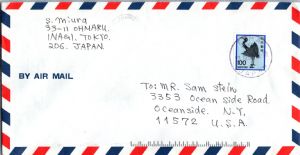 S. Miura
33-11 OHMARU.
INAGI, TOKYO.
206. JAPAN.
100
BY AIR MAIL
To: MR. Sam Stein
3353 Ocean Side Road
Oceanside. N.Y.
11572 U.S.A.